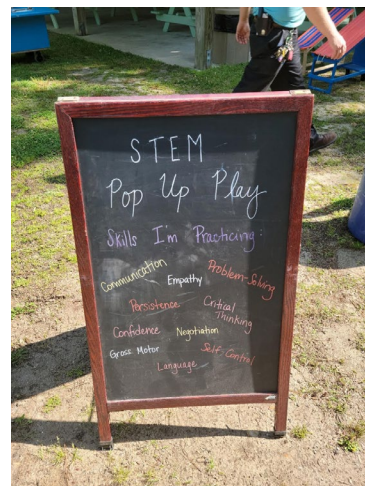 STEM
Pop Up Play
Skills I'm Practicing:
Communication Empathy Problem-Solving
Persistence Critical Thinking
Confidence Negotiation
Gross Motor Self-Control
Language